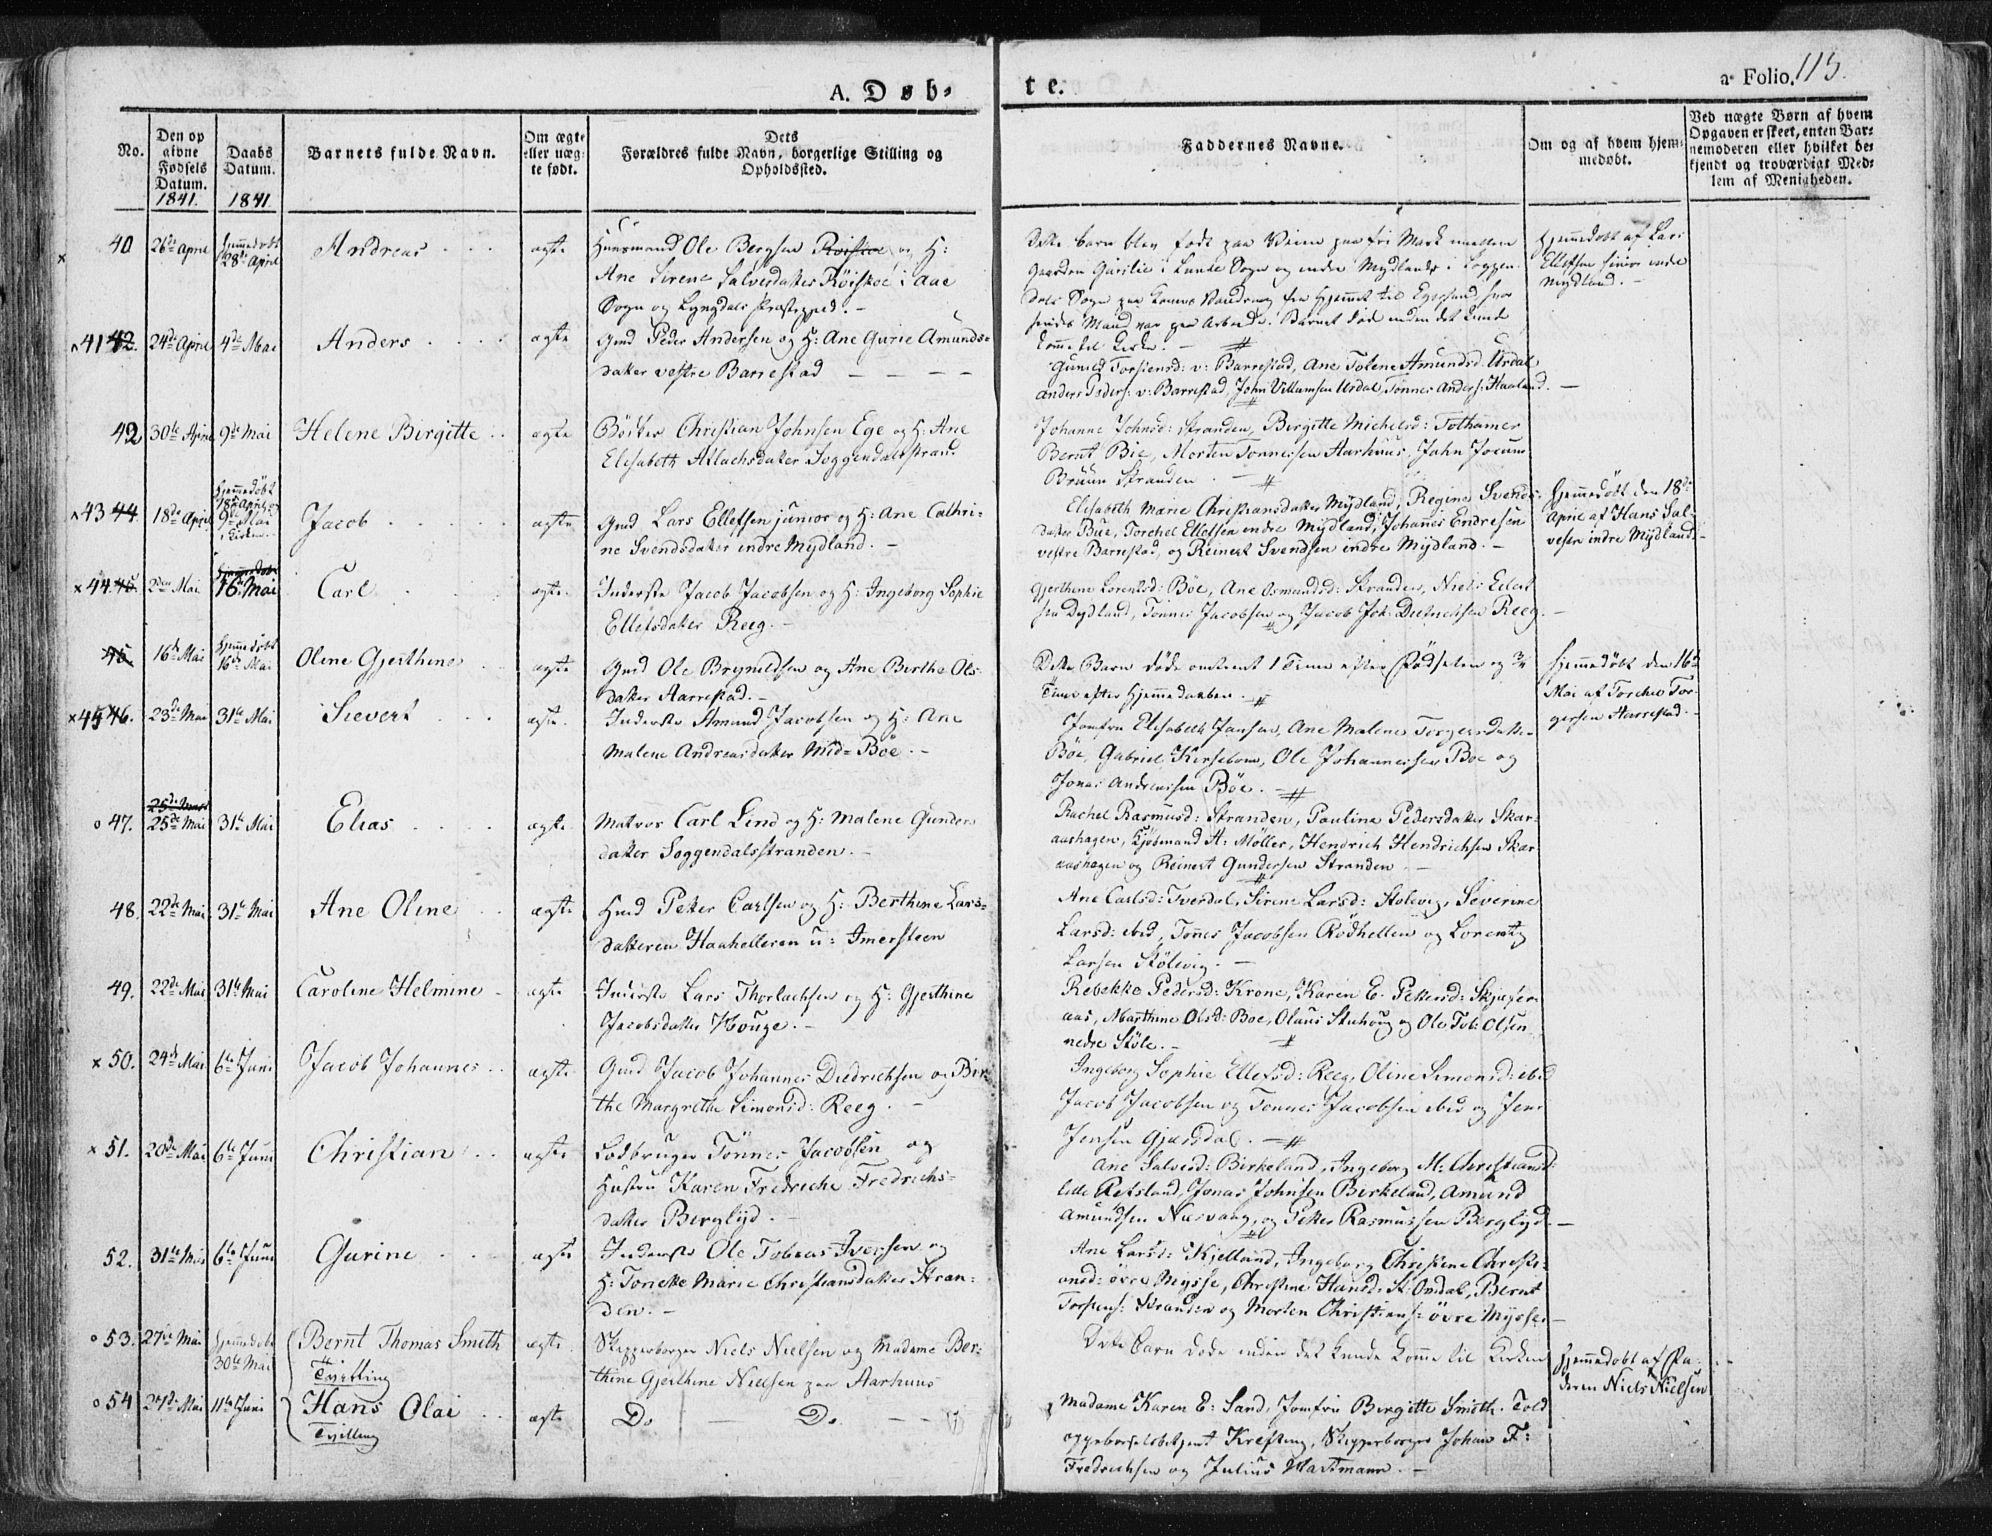 A. Døb-
te.
a Folio. 115.
No.
Den op
givne
Fødsels
Datum.
1841.
Daabs
Datum.
1841
Barnets fulde Navn.
Om ægte
eller uæg-
te født.
Dets
Forældres fulde Navn, borgerlige Stilling og
Opholdssted.
Faddernes Navne.
Om og af hvem hjem-
medøbt.
Ved uægte Børn af hvem
Opgaven er skeet, enten Bar-
nemoderen eller hvilket be-
kjendt og troværdigt Med-
lem af Menigheden.
x 40 26de April Hjemmedøbt
28de April Andreas ægte Huusmand Ole Bergsen Røiskoe og H:
Ane Sirene Salvesdatter Røiskoe i Aae
Sogn og Lyngdals Præstegjeld. -
Dette barn blev født paa Veien paa fri Mark imellem
Gaarden Gurilie i Lunde Sogn og indre Mydlands i Soggen-
dals Sogn paa Konens Vandring fra Hjemmet til Egersund hvor
hendes Mand var paa Arbeide. Barnet døde inden det kunde
komme til Kirke. -
Hjemmedøbt af Lars
Ellefsen junior indre
Mydland. -
41 42. 24de April 4de Mai Anders ægte Gmd Peder Andersen og H: Ane Gurie Amunds-
datter vestre Barrestad
Gunild Torsiensd: v: Barrestad, Ane Tolene Amundsd: Urdal
Anders Peders: v: Barrestad, John Villumsen Urdal, Tønnes Anders: Haaland. -
42 30te April 9de Mai Helene Birgitte ægte Bødker Christian Johnsen Ege og H: Ane
Elisabeth Atlachsdatter Soggendalsstrand
Johanne Johnsd: Stranden, Birgitte Michelsd: Tothamer
Bernt Bie, Morten Tønnessen Aarhuus, John Jocum
Bruun Stranden. -
43 44 18de April Hjemmedøbt
18de April
9de Mai
i Kirken Jacob ægte Gmd Lars Ellefsen junior og H: Ane Cathri-
ne Svendsdatter indre Mydland. -
Elisabeth Marie Christiansdatter Mydland, Regine Svends-
datter Bue, Torchel Ellefsen indre Mydland, Johannes Endresen
vestre Barrestad, og Reinert Svendsen indre Mydland. -
Hjemmedøbt den 18de
April af Hans Sal-
vesen indre Mydland. -
x 44 45. 2den Mai Hjemmedøbt
16de Mai Carl ægte Inderste Jacob Jacobsen og H: Ingeborg Sophie
Ellefsdatter Reeg. -
Gjerthine Lorentsd: Bøe, Ane Osmundsd: Stranden, Niels Eilert-
sen Dydland, Tønnes Jacobsen og Jacob Joh: Diedrichsen Reeg. -
45. 16de Mai Hjemmedøbt
16de Mai Oline Gjerthine ægte Gmd Ole Brynildsen og Ane Berthe Ols-
datter Aarrestad. -
Dette Barn døde omtrent 1 Time efter Fødselen og 3/4
Time efter Hjemmedaaben. -
Hjemmedøbt den 16de
Mai af Torchel Tor-
gersen Aarrestad. -
x 45 46. 23de Mai 31te Mai Sievert ægte Inderste Amund Jacobsen og H: Ane
Malene Andreasdatter Mid-Bøe. -
Jomfru Elisabeth Jansen, Ane Malene Torgersdatter
Bøe, Gabriel Kirsebom, Ole Johannessen Bøe og
Jonas Andreassen Bøe. -
o 47. 25de Mars
25de Mai 31te Mai Elias ægte Matros Carl Lind og H: Malene Gunders-
datter Soggendalsstranden. -
Rachel Rasmusd: Stranden, Pauline Pedersdatter Skar-
aashagen, Kjøbmand A: Møller, Hendrich Hendrichsen Skar-
aashagen og Reinert Gundersen Stranden. -
48. 22de Mai 31te Mai Ane Oline ægte Hmd Petter Carlsen og H: Berthine Lars-
datteren Haahelleren u: Imersteen
Ane Carlsd: Tverdal, Sirene Larsd: Stølevig, Severine
Larsd: ibid, Tønnes Jacobsen Rødhellen og Lorents
Larsen Stølevig. -
49. 22de Mai 31te Mai Caroline Helmine ægte Inderste Lars Thorlachsen og H: Gjerthine
Jacobsdatter Houge. -
Rebekke Pedersd: Krone, Karen E. Pettersd: Skjæfer-
aas, Marthine Olsd: Bøe, Olaus Stuhoug og Ole Tob: Olsen
nedre Støle. -
x 50. 24de Mai 6te Juni Jacob Johannes ægte Gmd Jacob Johannes Diedrichsen og Bir-
the Margrethe Simonsd: Reeg. -
Ingeborg Sophie Ellefsd: Reeg, Oline Simonsd: ibid
Jacob Jacobsen og Tønnes Jacobsen ibid og Jens
Jensen Gjæsdal. -
x 51. 20de Mai 6te Juni Christian ægte Lodbruger Tønnes Jacobsen og
Hustru Karen Fredriche Fredrichs-
datter Berglyd. -
Ane Salvesd: Birkeland, Ingeborg M: Christiansd:
lille Refsland, Jonas Johnsen Birkeland, Amund
Amundsen Nusvaag, og Petter Rasmussen Berglyd. -
52. 31te Mai 6te Juni Gurine ægte Inderste Ole Tobias Iversen og
H: Tonette Marie Christiansdatter Stran-
den. -
Ane Larsd: Kjelland, Ingeborg Christine Christi-
ansd: øvre Mysse, Christine Hansd: St: Omdal, Bernt
Torsens: Stranden og Morten Christians: øvre Mysse. -
o 53. 27de Mai Hjemmedøbt
30te Mai Bernt Thomas Smith
Tvilling ægte Skipperborger Niels Nielsen og Madame Ber-
thine Gjerthine Nielsen paa Aarhuus
Dette Barn døde inden det kunde komme til Kirken
Hjemmedøbt af Fa-
deren Niels Nielsen
o 54 27de Mai 11te Juni Hans Olai
Tvilling ægte Do - Do - -
Madame Karen E: Sand, Jomfru Birgitte Smith, Told
oppebørselsbetjent Krefting, Skipperborger Johan F:
Fredrichsen og Julius Wattmann. -